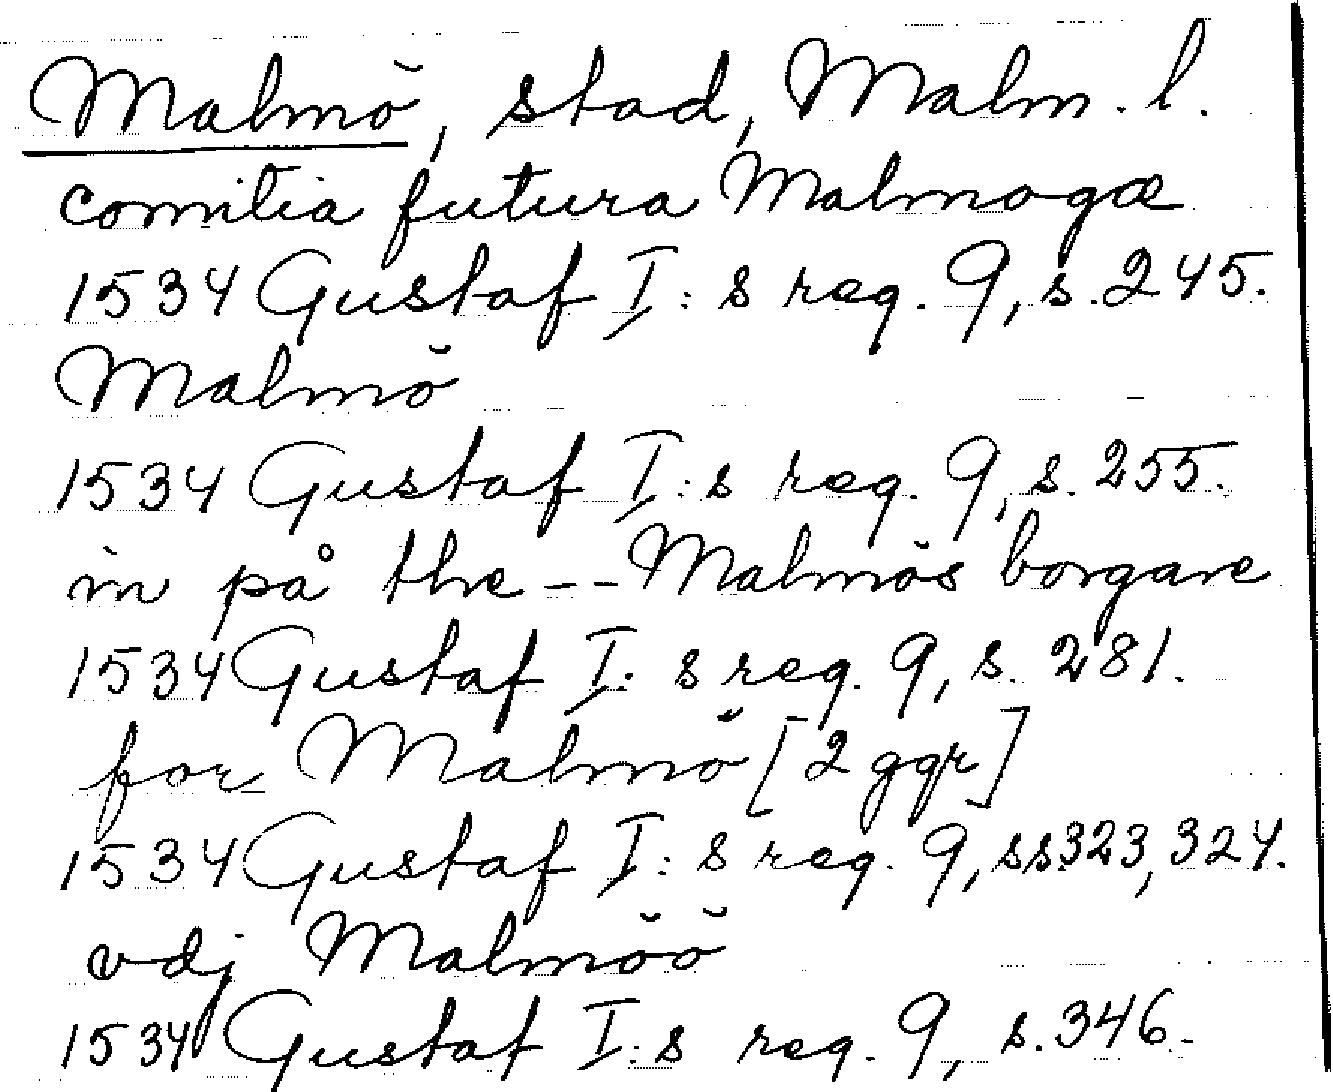 Malmö, stad, Malm. l.
comitia futura Malmogæ
1534 Gustaf I:s reg. 9, s. 245.
Malmö
1534 Gustaf I:s reg. 9, s. 255.
in på the -- Malmös borgare
1534 Gustaf I:s reg. 9, s. 281.
for Malmö [2 ggr]
1534 Gustaf I:s reg. 9, ss. 323, 324.
vdj Malmöö
1534 Gustaf I:s reg. 9, s. 346.